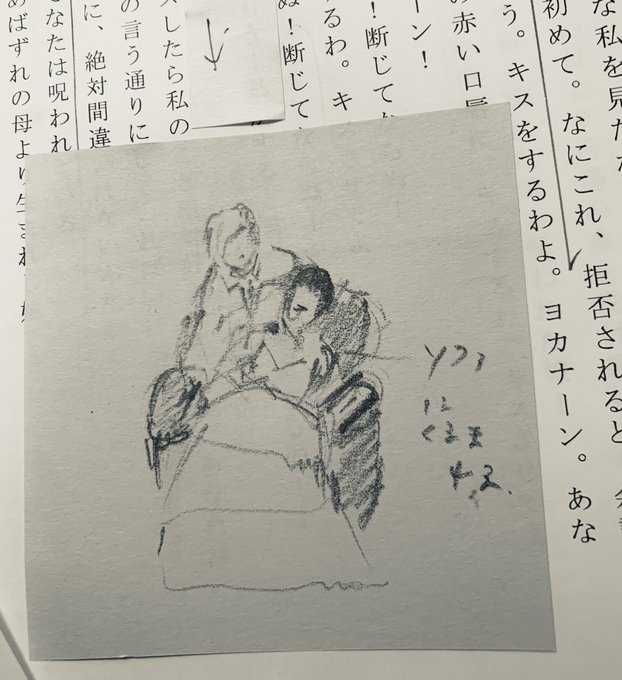 な私を見た
初めて。なにこれ、拒否されると
う。キスをするわよ。ヨカナーン。あな
の赤い口
ーン！
！断じて
するわ。キ
ぬ！断じて
スしたら私の
の言う通りに
に、絶対間違
なたは呪われ
あばずれの母より生まれ
ソファ
に
くるま